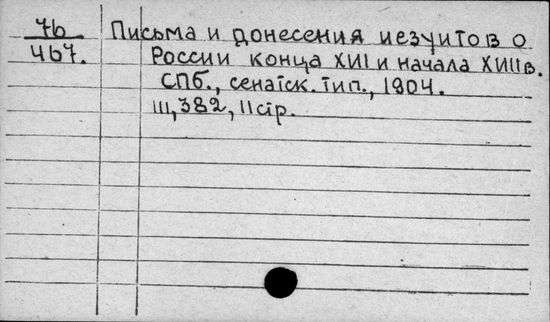 76
467.
Письма и донесения иезуитов о
России конца XVII и начала XVIII в.
СПб., сенатск. тип., 1904.
III, 382, II стр.